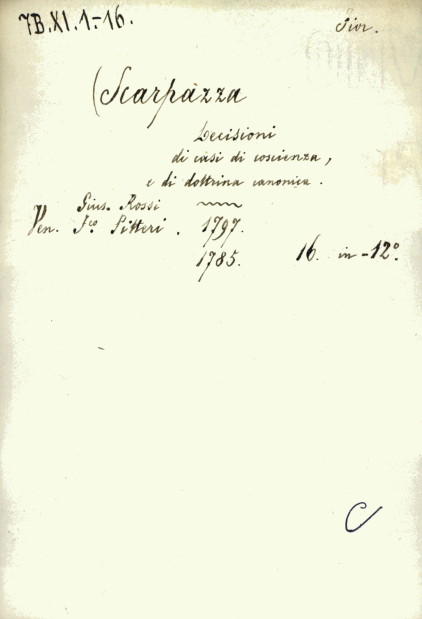 7B.XI.1.-16.
Giur.
(Scarpazza
Decisioni
di casi di coscienza,
e di dottrina canonica.
Gius. Rossi
Ven. Fco Pitteri. 1797.
1785. 16. in-12º.
C